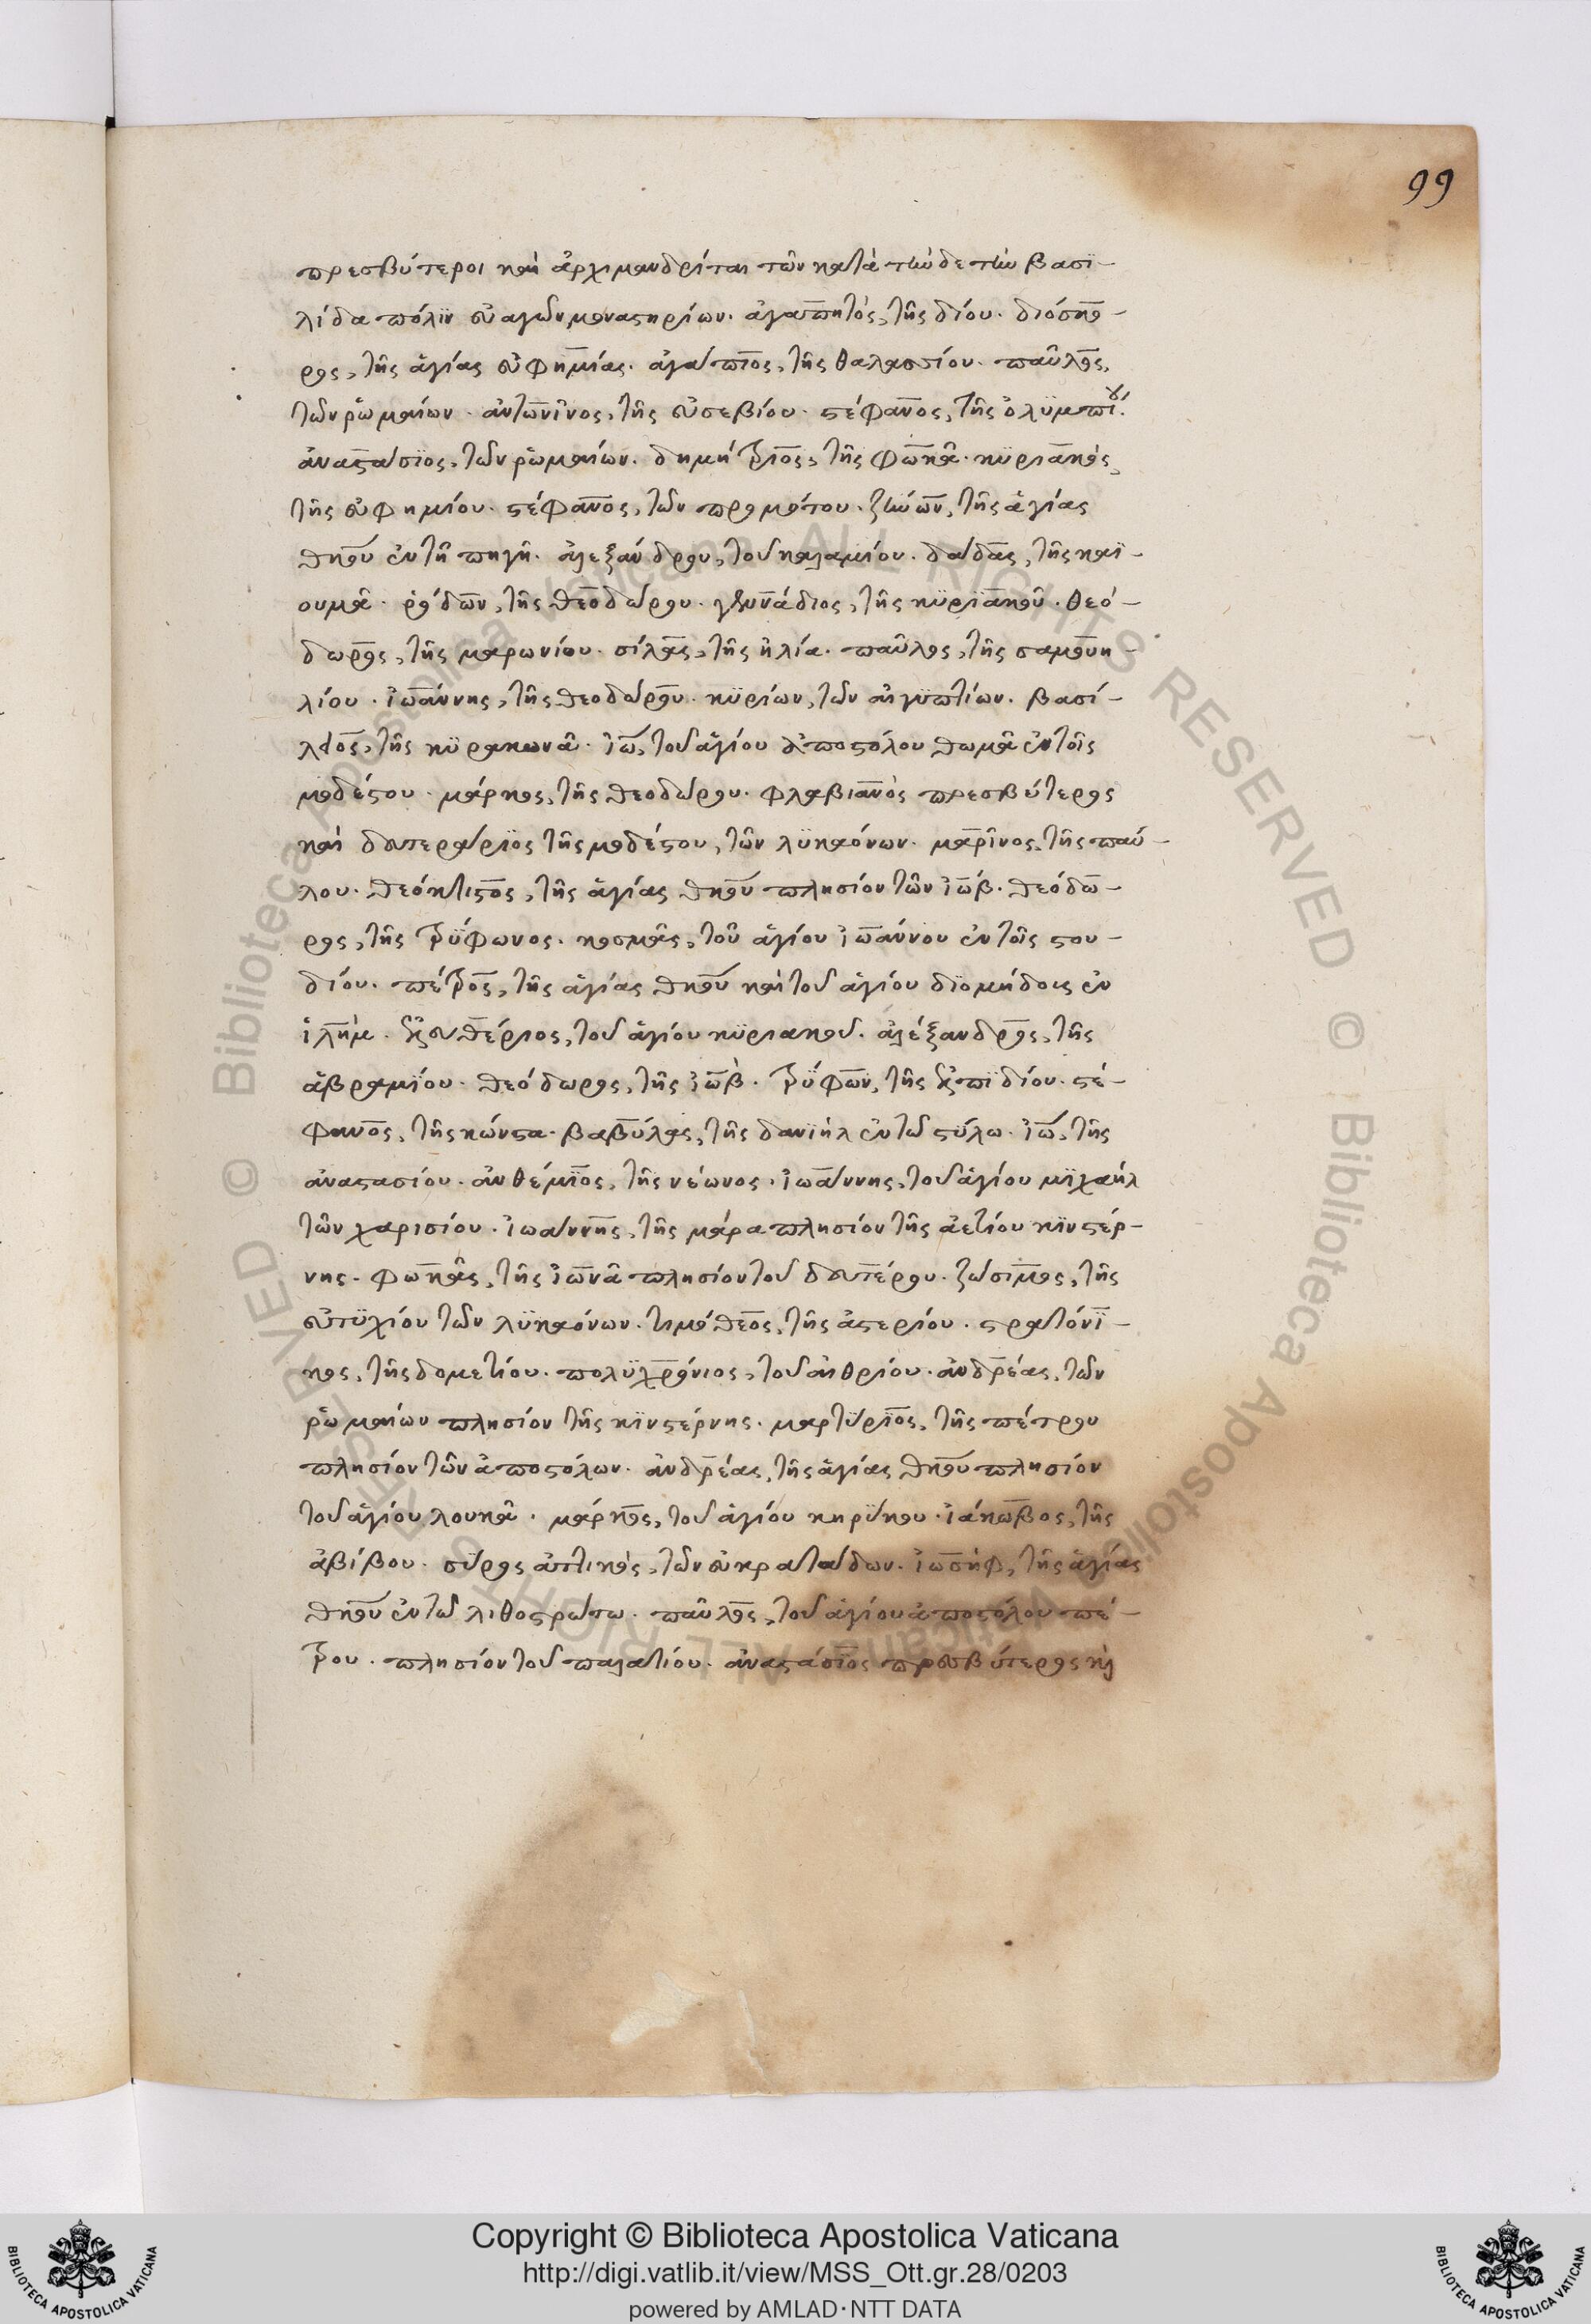 99
πρεσβύτεροι καὶ ἀρχιμανδρίται τῶν κατὰ τήνδε τὴν βασϊ-
λίδα πόλϊν εὐαγῶν μοναστηρίων. ἀγαπητὸς, τῆς δίου. διόσκο-
ρος, τῆς ἁγίας εὐφημίας. ἀγάπιος, τῆς θαλασσίου. παῦλος,
τῶν ῥωμαίων. ἀντωνῖνος, τῆς εὐσεβίου. στέφανος, τῆς ὀλϋμπίου.
ἀναστάσϊος, τῶν ῥωμαίων. δημήτριος, τῆς φωκᾶ. κϋριακὸς,
τῆς εὐφημίου. στέφανος, τῶν προμότου. ζήνων, τῆς ἁγίας
θκου ἐν τῆ πηγῆ. ἀλεξάνδρου, τοῦ καλαμίου. δάδας, τῆς καϊ-
ουμᾶ. ῥόδων, τῆς θεοδώρου. γεννάδιος, τῆς κϋρϊακοῦ. θεό-
δωρος, τῆς μαρωνίου. σίλας, τῆς ἠλία. παῦλος, τῆς σαμουη-
λίου. ἰωάννης, τῆς θεοδώρου. κϋρίων, τῶν αἰγϋπτίων. βασί-
λειος, τῆς κϋρακωνᾶ. ἰω, τοῦ ἁγίου ἀποστόλου θωμᾶ ἐν τοῖς
μοδέστου. μάρκος, τῆς θεοδώρου. φλαβιανὸς πρεσβύτερος
καὶ δευτεράρϊος τῆς μοδέστου, τῶν λϋκαόνων. μαρῖνος, τῆς παύ-
λου. θεόκτιστος, τῆς ἁγίας θκου πλησίον τῶν ἰώβ. θεόδω-
ρος, τῆς τρϋφωνος. κοσμᾶς, τοῦ ἁγίου ἰωάννου ἐν τοῖς στου-
δίου. πέτρος, τῆς ἁγίας θκου καὶ τοῦ ἁγίου δϊομήδους ἐν
ἱλημ. ἐλευθέριος, τοῦ ἁγίου κϋριακοῦ. ἀλέξανδρος, τῆς
ἀβραμϊου. θεόδωρος, τῆς ἰὼβ. τρϋφων, τῆς ἐλπϊδίου. στέ-
φανος, τῆς κώνστα. βαβύλας, τῆς δανϊὴλ ἐν τῶ στϋλω. ἰω, τῆς
ἀναστασίου. ἀνθέμϊος, τῆς νέωνος. ἰωάννης, τοῦ ἁγίου μϊχαὴλ
τῶν χαρισίου. ἰωάννης, τῆς μάρα πλησίον τῆς ἀετίου κϊνστέρ-
νης. φωκᾶς, τῆς ἰωνᾶ πλησίον τοῦ δευτέρου. ζώσιμος, τῆς
εὐτϋχίου τῶν λϋκαόνων. τιμόθεος, τῆς ἀστερίου. στρατόνϊ-
κος, τῆς δομετίου. πολϋχρόνιος, τοῦ αἰθρίου. ἀνδρέας, τῶν
ῥωμαίων πλησίον τῆς κϊνστέρνης. μαρτϋρϊος, τῆς πέτρου
πλησίον τῶν ἀποστόλων. ἀνδρέας, τῆς ἁγίας θκου πλησίον
τοῦ ἁγίου λουκᾶ. μάρκος, τοῦ ἁγίου κηρϋκου. ἰάκωβος, τῆς
ἀβίβου. σῦρος ἀττικὸς, τῶν εὐκρατάδων. ἰωσὴφ, τῆς ἁγίας
θκου ἐν τῶ λιθοστρώτω. παῦλος, τοῦ ἁγίου ἀποστόλου πέ-
τρου. πλησίον τοῦ παλατίου. ἀναστάσϊος πρεσβύτερος κὶ
Copyright © Biblioteca Apostolica Vaticana
http://digi.vatlib.it/view/MSS_Ott.gr.28/0203
powered by AMLAD·NTT DATA